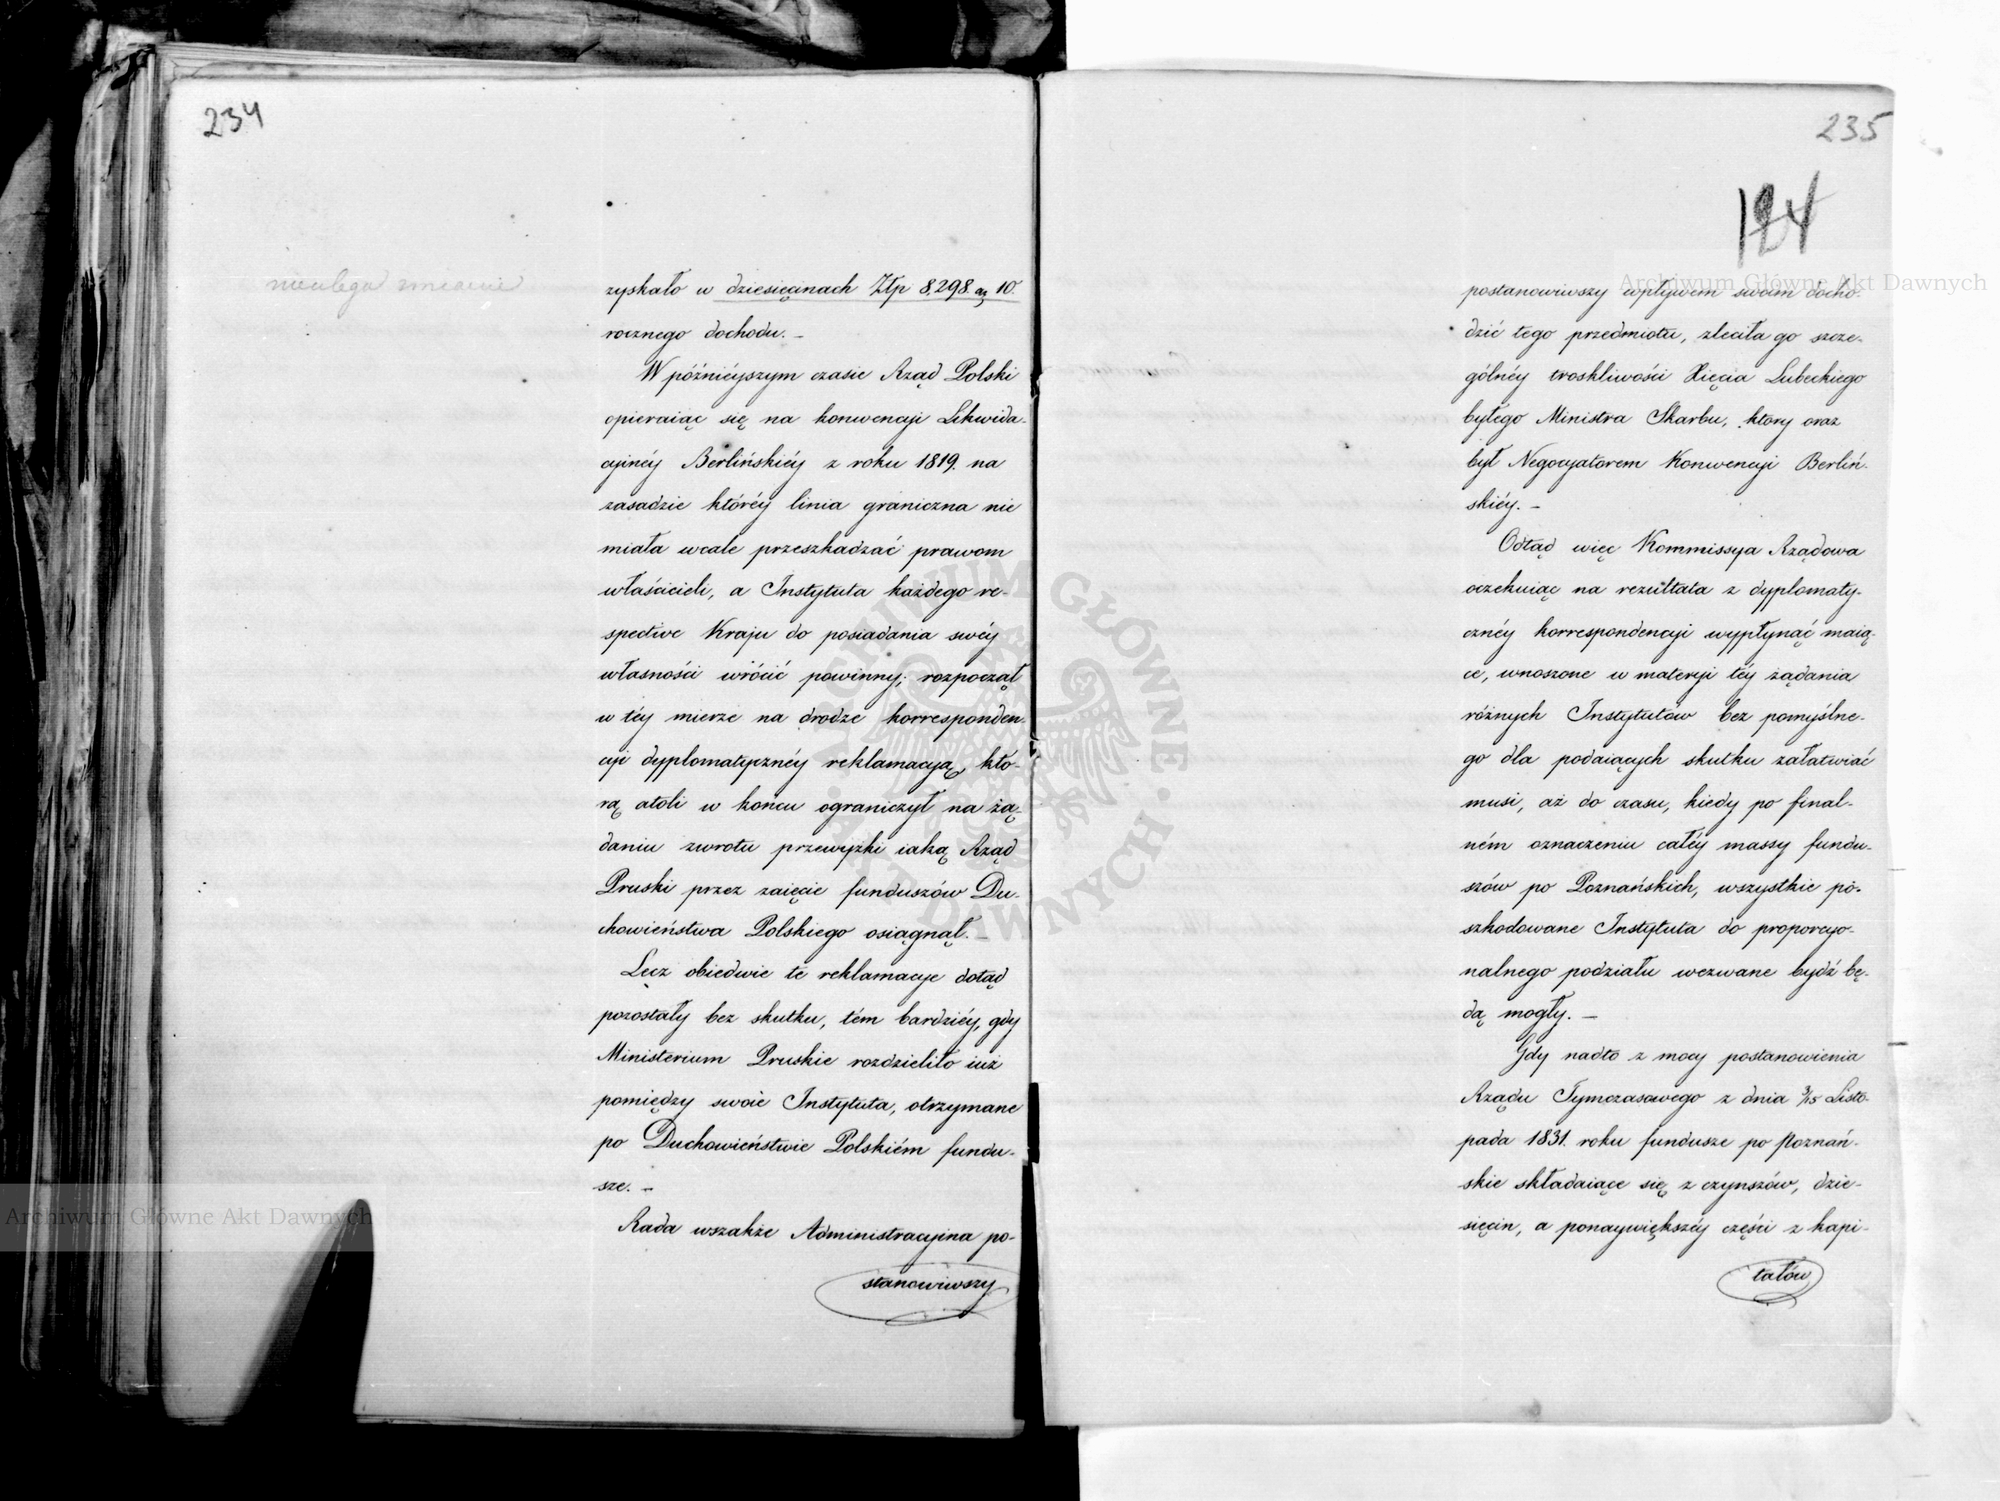 234
nieulega zmianie
zyskało w dziesięcinach Złp 8,298. gr 10.
rocznego dochodu. –
W późniéyszym czasie Rząd Polski
opieraiąc się na konwencyi Likwida-
cyinéy Berlińskiéy z roku 1819. na
zasadzie któréy linia graniczna nie
miała wcale przeszkadzać prawom
właścicieli, a Instytuta każdego re-
spective Kraju do posiadania swéy
własności wrócić powinny; rozpoczął
w téy mierze na drodze korresponden-
cyi dyplomatycznéy reklamacyą, któ-
rą atoli w końcu ograniczył na żą-
daniu zwrotu przewyżki iaką Rząd
Pruski przez zaięcie funduszów Du-
chowieństwa Polskiego osiągnął. –
Lecz obiedwie te reklamacye dotąd
pozostały bez skutku, tém bardziéy, gdy
Ministerium Pruskie rozdzieliło iuż
pomiędzy swoie Instytuta, otrzymane
po Duchowieństwie Polskiém fundu-
sze. –
Rada wszakże Administracyina po-
stanowiwszy
235
124
postanowiwszy wpływem swoim docho-
dzić tego przedmiotu, zleciła go szcze-
gólnéy troskliwości Xięcia Lubeckiego
byłego Ministra Skarbu, który oraz
był Negocyatorem Konwencyi Berliń-
skiéy. –
Odtąd więc Kommissya Rządowa
oczekuiąc na rezultata z dyplomaty-
cznéy korrespondencyi wypłynąć maią-
ce, wnoszone w materyi téy żądania
różnych Instytutów bez pomyślne-
go dla podaiących skutku załatwiać
musi, aż do czasu, kiedy po final-
ném oznaczeniu całéy massy fundu-
szów po Poznańskich, wszystkie po-
szkodowane Instytuta do proporcyo-
nalnego podziału wezwane bydź bę-
dą mogły. –
Gdy nadto z mocy postanowienia
Rządu Tymczasowego z dnia 3/15 Listo-
pada 1831. roku fundusze po Poznań-
skie składaiące się z czynszów, dzie-
sięcin, a ponaywiększéy części z kapi-
tałów
Archiwum Główne Akt Dawnych
Archiwum Główne Akt Dawnych
ARCHIWUM GŁÓWNE · AKT DAWNYCH ·